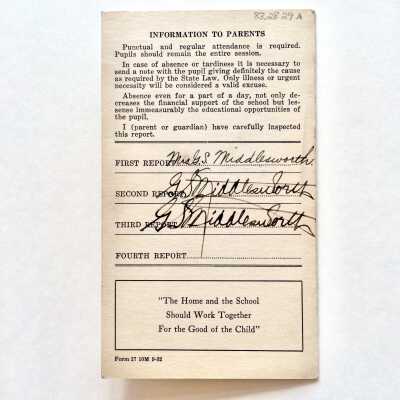 83.28.29 A
INFORMATION TO PARENTS
Punctual and regular attendance is required.
Pupils should remain the entire session.
In case of absence or tardiness it is necessary to
send a note with the pupil giving definitely the cause
as required by the State Law. Only illness or urgent
necessity will be considered a valid excuse.
Absence even for a part of a day, not only de-
creases the financial support of the school but les-
sens immeasurably the educational opportunities of
the pupil.
I (parent or guardian) have carefully inspected
this report.
FIRST REPORT Mrs. G. S. Middlesworth.
SECOND REPORT G. S. Middlesworth
THIRD REPORT G. S. Middlesworth
FOURTH REPORT
"The Home and the School
Should Work Together
For the Good of the Child"
Form 27 10M 9-32